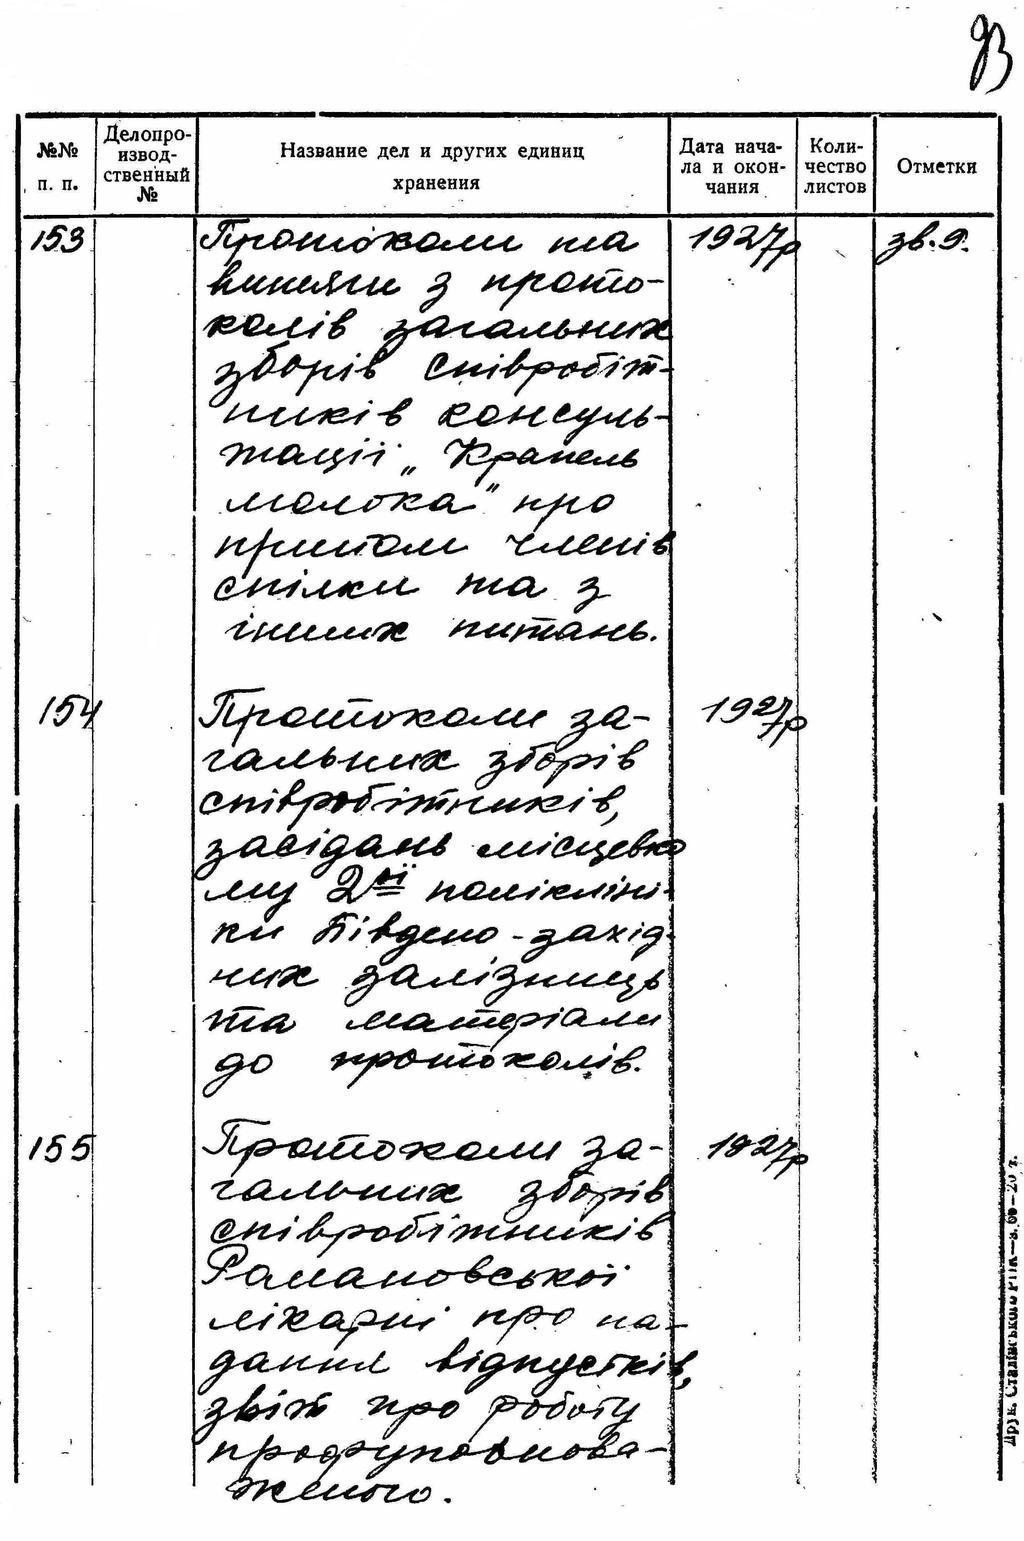 93
№№ п. п.
Делопро-
извод-
ственный
№
Название дел и других единиц
хранения
Дата нача-
ла и окон-
чания
Коли-
чество
листов
Отметки
153 Протоколи та 1927р зв. 9.
витяги з прото-
колів загальних
зборів співробіт-
ників консуль-
тації „Крапель
молока" про
прийом членів
спілки та з
інших питань.
154 Протоколи за- 1927р
гальних зборів
співробітників,
засідань місцевко
му 2ої поліклині-
ки Південо-захід-
них залізниць
та матеріали
до протоколів.
155 Протоколи за- 1927р
гальних зборів
співробітників
Романовської
лікарні про на-
дання відпустків,
звіт про роботу
профуповнова-
женого.
Друк. Сталінського